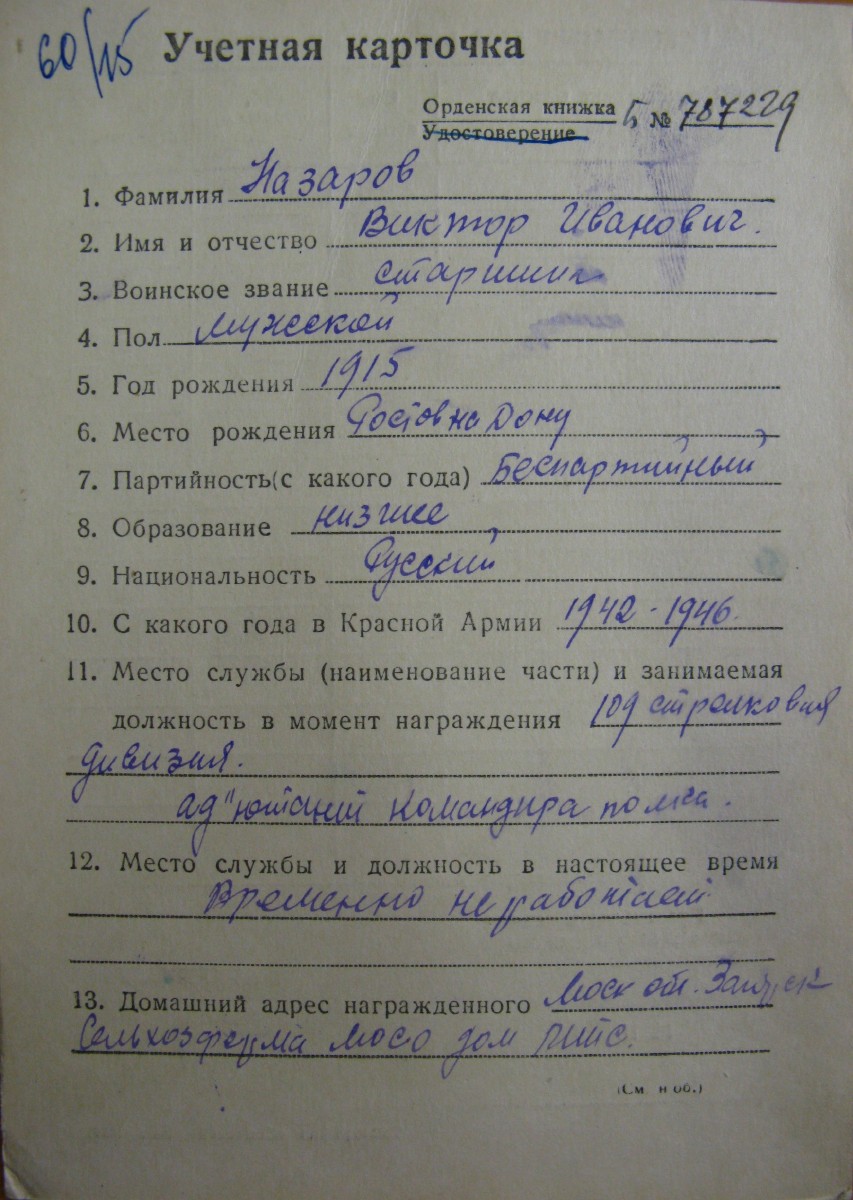 60/15 Учетная карточка
Орденская книжка Б № 787229
Удостоверение
1. Фамилия Назаров
2. Имя и отчество Виктор Иванович.
3. Воинское звание старшина
4. Пол Мужской
5. Год рождения 1915
6. Место рождения Ростов на Дону
7. Партийность(с какого года) Беспартийный
8. Образование низшее
9. Национальность Русский
10. С какого года в Красной Армии 1942-1946.
11. Место службы (наименование части) и занимаемая
должность в момент награждения 109 стрелковая
дивизия.
ад"ютант командира полка.
12. Место службы и должность в настоящее время
Временно не работает
13. Домашний адрес награжденного Моск обл.
Сельхозферма дом
(См н об.)